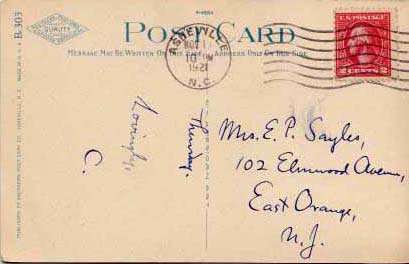 B-303
QUALITY
POST CARD
MESSAGE MAY BE WRITTEN ON THIS SIDE
ADDRESS ONLY ON THIS SIDE
ASHEVILLE
NOV
1921
N.C.
U.S. POSTAGE
2 CENTS 2
Thursday
C.
Mrs. E. P. Sayles,
102 Elmwood Avenue,
East Orange,
N. J.